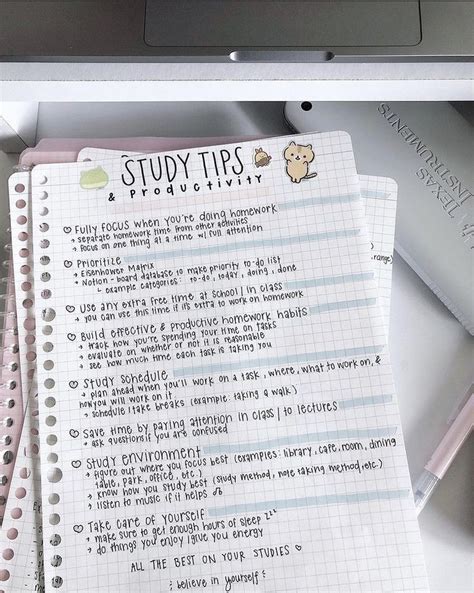 STUDY TIPS
& productivity
Fully focus when you're doing homework
→ separate homework time from other activities
→ focus on one thing at a time w/ full attention
Prioritize
→ Eisenhower Matrix
→ Notion - board database to make priority to-do list
↳ example categories: to-do, today, doing, done
Use any extra free time at school / in class
→ you can use this time if it's extra to work on homework
Build effective & productive homework habits
→ track how you're spending your time on tasks
→ evaluate on whether or not it is reasonable
→ see how much time each task is taking you
Study schedule
→ plan ahead when you'll work on a task, where, what to work on, &
how you will work on it
→ schedule / take breaks (example: taking a walk)
Save time by paying attention in class / to lectures
→ ask questions if you are confused
Study environment
→ figure out where you focus best (examples: library, cafe, room, dining
table, park, office, etc.)
→ know how you study best (study method, note taking method, etc.)
→ listen to music if it helps
Take care of yourself
→ make sure to get enough hours of sleep zzz
→ do things you enjoy / give you energy
ALL THE BEST ON YOUR STUDIES
believe in yourself
range)
TEXAS
INSTRUMENTS